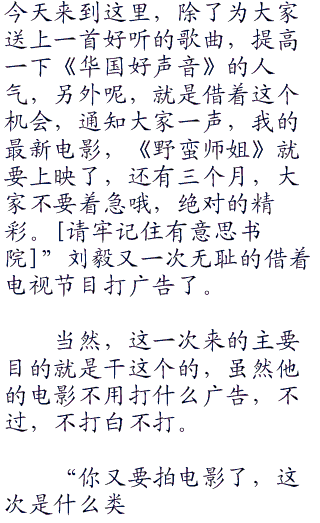 今天来到这里，除了为大家
送上一首好听的歌曲，提高
一下《华国好声音》的人
气，另外呢，就是借着这个
机会，通知大家一声，我的
最新电影，《野蛮师姐》就
要上映了，还有三个月，大
家不要着急哦，绝对的精
彩。[请牢记住有意思书
院]”刘毅又一次无耻的借着
电视节目打广告了。
当然，这一次来的主要
目的就是干这个的，虽然他
的电影不用打什么广告，不
过，不打白不打。
“你又要拍电影了，这
次是什么类